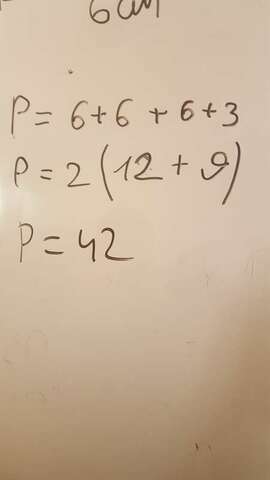 6 cm
P = 6+6 + 6+3
P = 2 (12 + 9)
P = 42